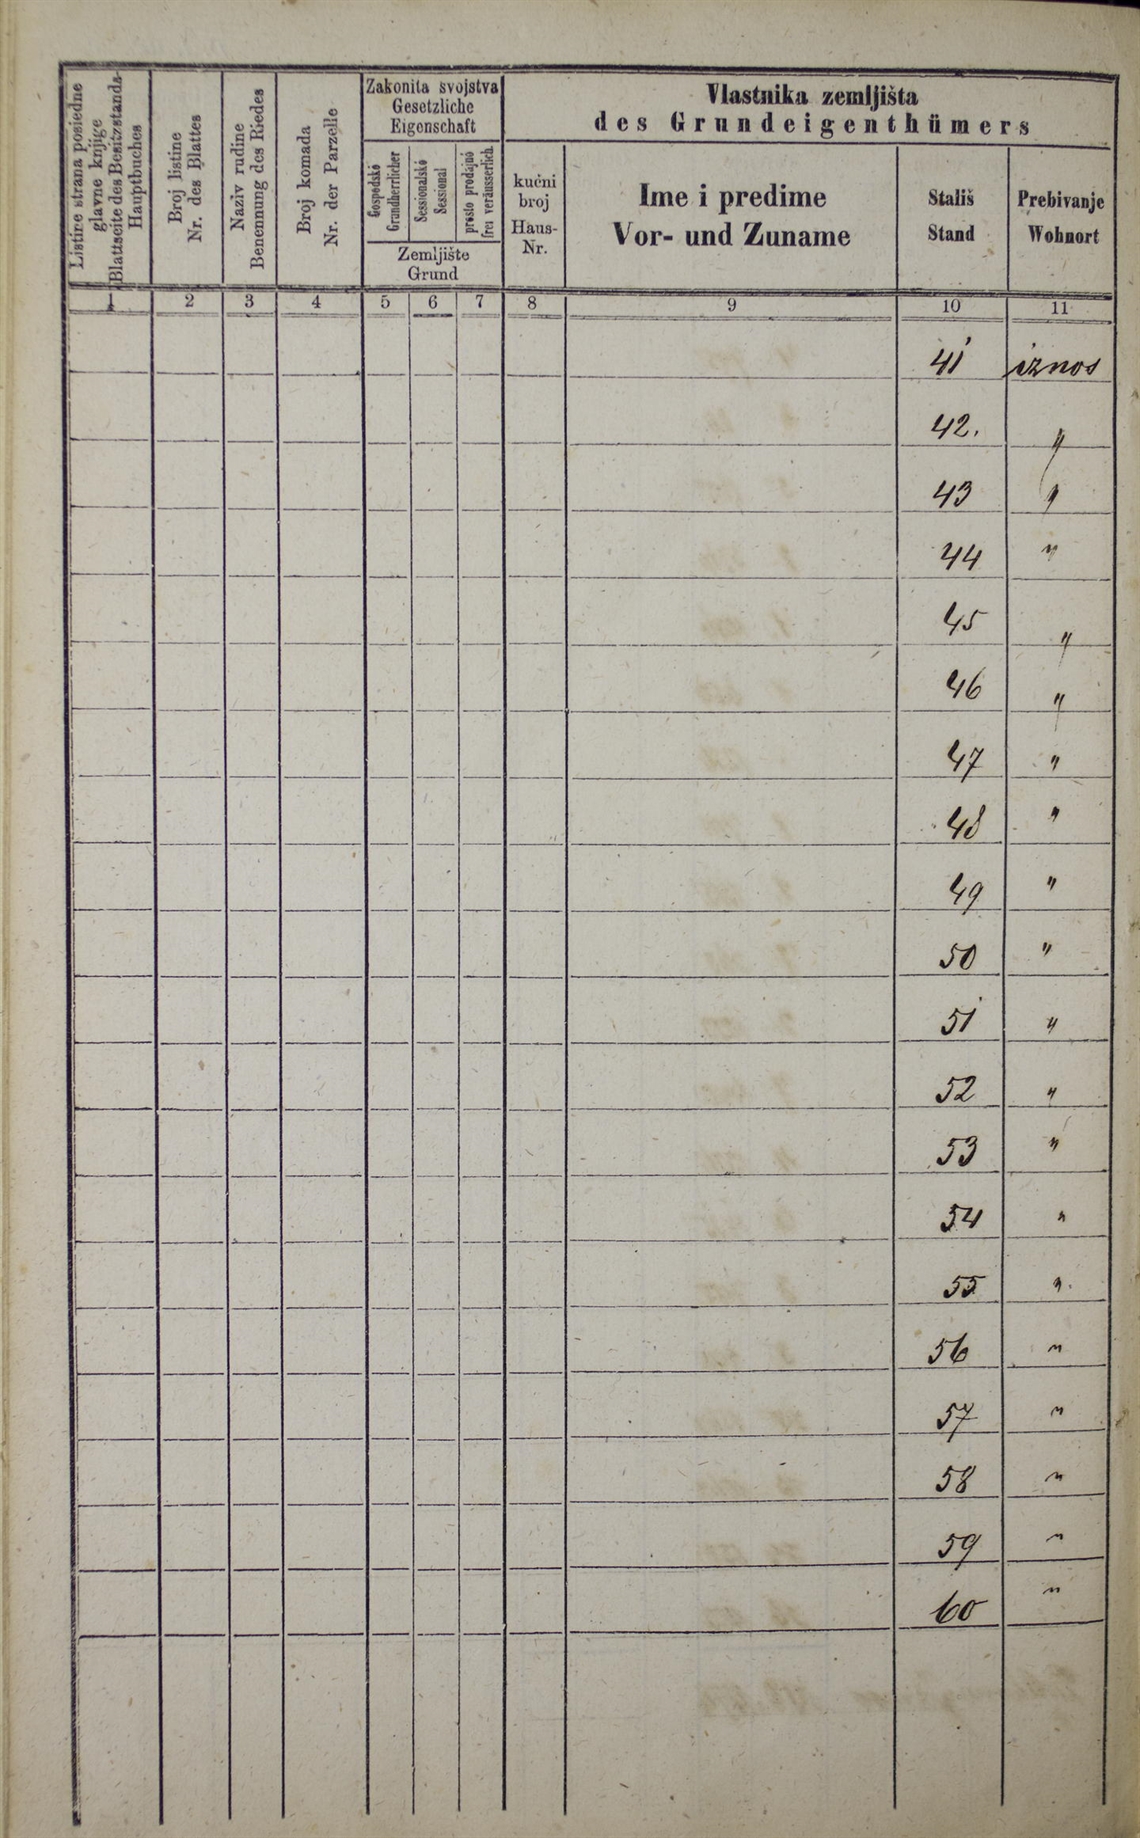 Listine strana posiedne
glavne knjige
Blattseite des Besitzstands-
Hauptbuches
Broj listine
Nr. des Blattes
Naziv rudine
Benennung des Riedes
Broj komada
Nr. der Parzelle
Zakonita svojstva
Gesetzliche
Eigenschaft
Gospodskó
Grundherrlicher
Sessionalskó
Sessional
prosto prodajnó
frei veräusserlich.
Zemljište
Grund
Vlastnika zemljišta
des Grundeigenthümers
kućni
broj
Haus-
Nr.
Ime i predime
Vor- und Zuname
Stališ
Stand
Prebivanje
Wohnort
1 2 3 4 5 6 7 8 9 10 11
41 iznos
42. "
43 "
44 "
45 "
46 "
47 "
48 "
49 "
50 "
51 "
52 "
53 "
54 "
55 "
56 "
57 "
58 "
59 "
60 "